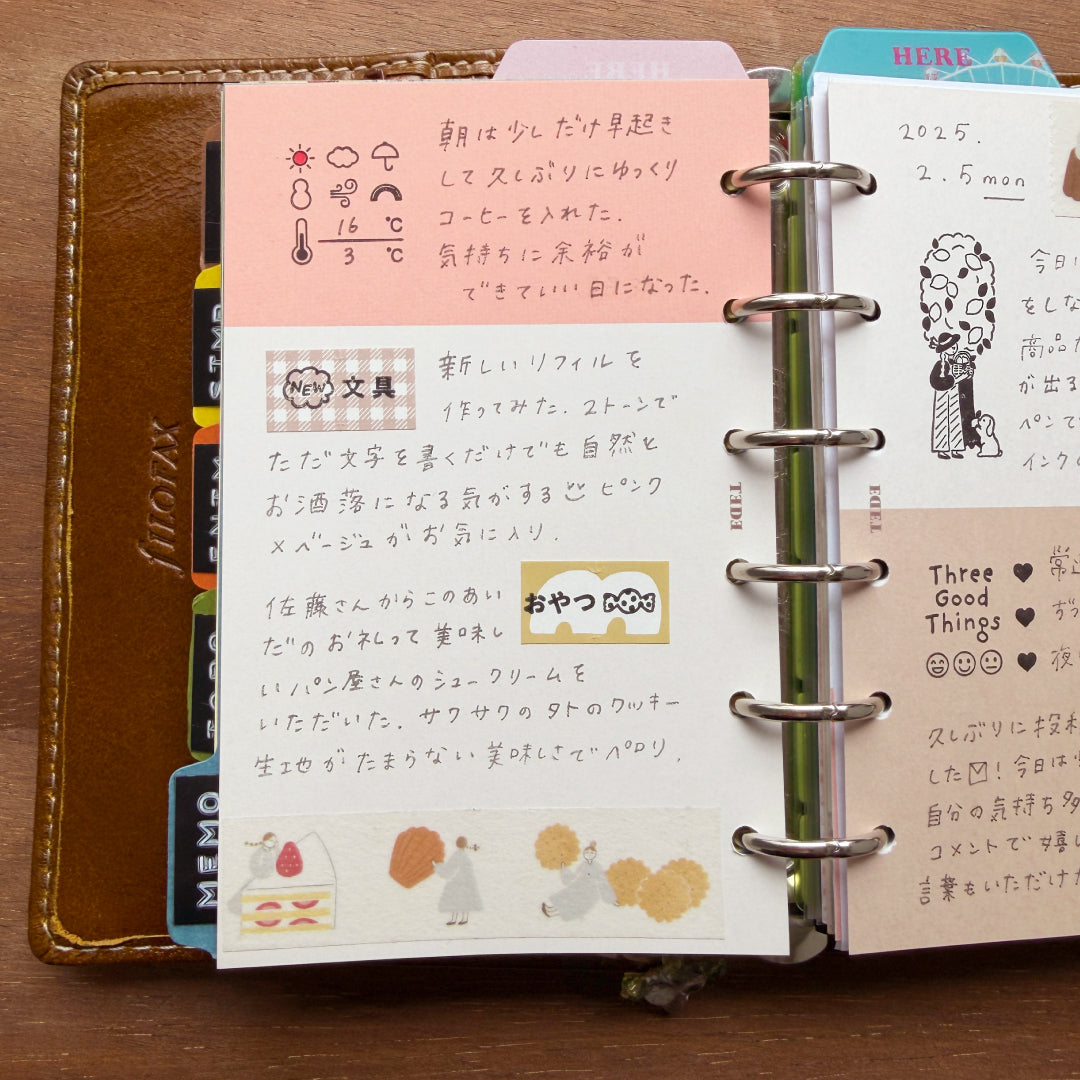 HERE
朝は少しだけ早起き
して久しぶりにゆっくり
コーヒーを入れた.
気持ちに余裕が
できていい日になった.
16 ℃
3 ℃
NEW 文具
新しいリフィルを
作ってみた. 2トーンで
ただ文字を書くだけでも自然と
お洒落になる気がする ピンク
×ベージュがお気に入り.
おやつ
佐藤さんからこのあい
だのお礼って美味し
いパン屋さんのシュークリームを
いただいた. サクサクの外のクッキー
生地がたまらない美味しさでペロリ.
filofax
MEMO
HERE
2025.
2.5 mon
今日
をしな
商品
が出る
ペンで
インクの
Three
Good
Things
夜
久しぶりに投稿
した！今日は
自分の気持ち多
コメントで嬉し
言葉もいただけた